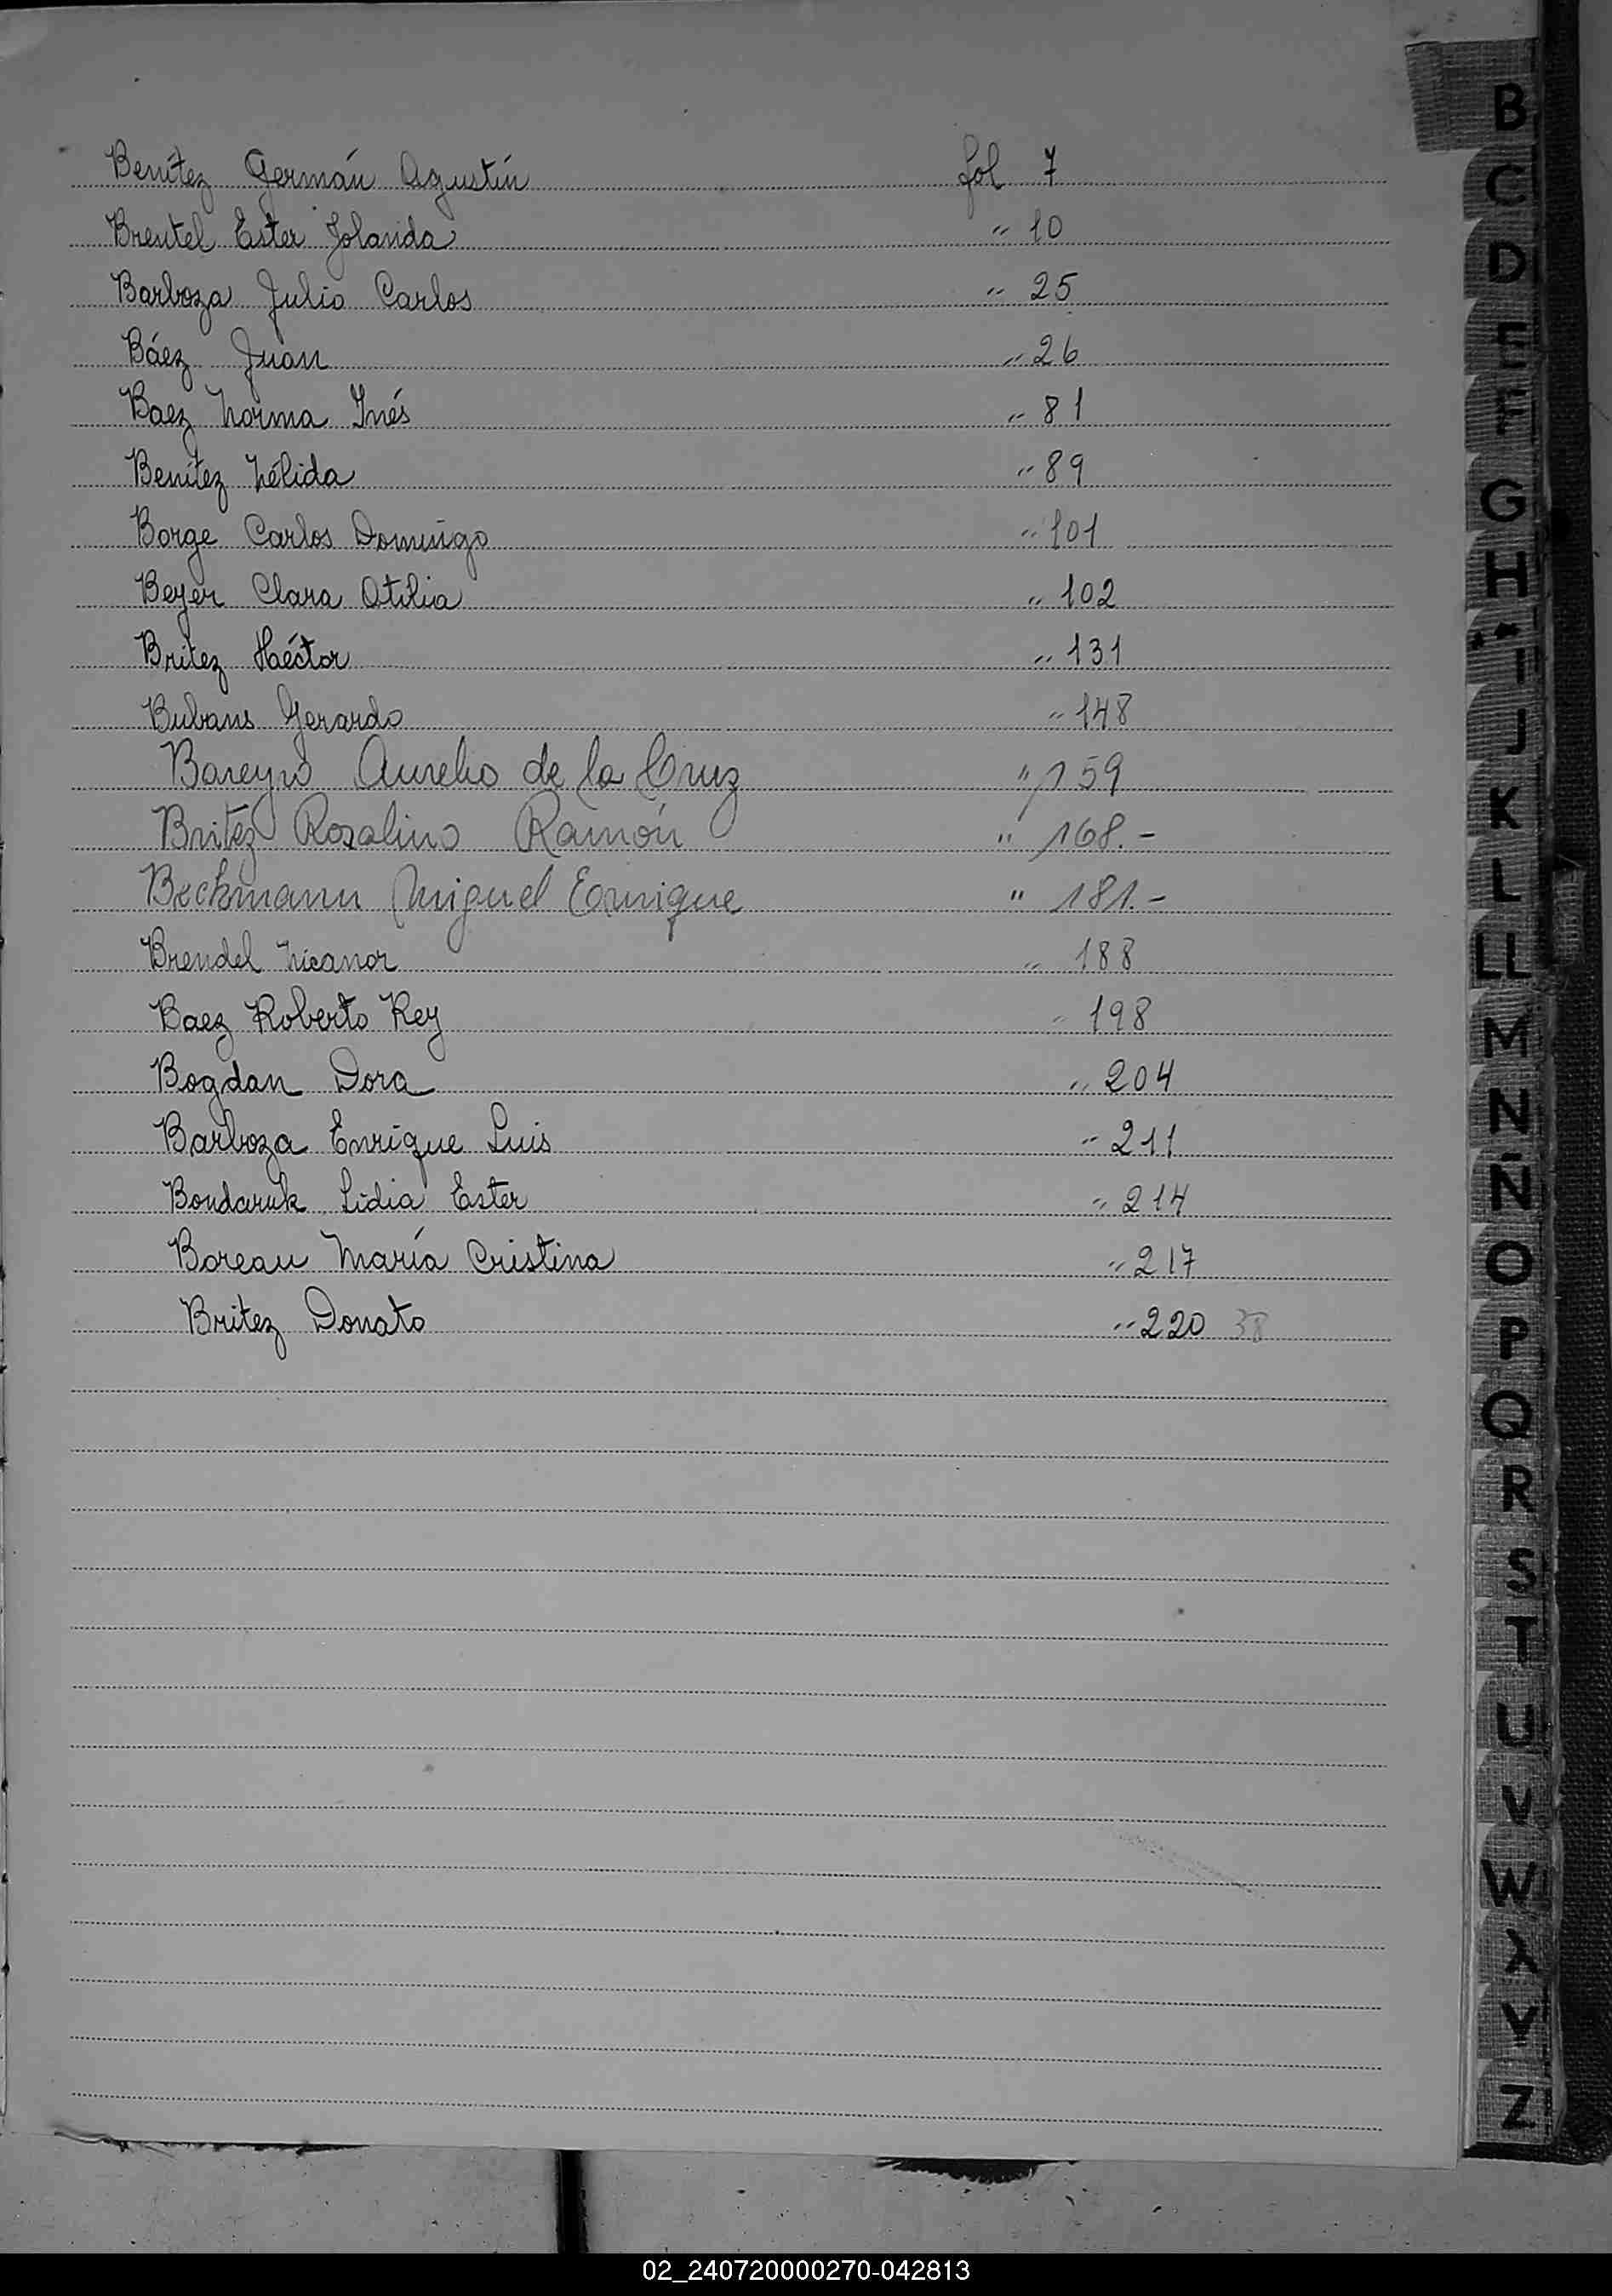 Benítez Germán Agustín fol 7
Breutel Ester Jolanda " 10
Barboza Julio Carlos " 25
Báez Juan " 26
Baez Norma Inés " 81
Benítez Nélida " 89
Borge Carlos Domingo " 101
Beyer Clara Otilia " 102
Britez Héctor " 131
Bubans Gerardo " 148
Bareyro Aurelio de la Cruz " 159
Britez Rosalino Ramón " 168.-
Beckmann Miguel Enrique " 181.-
Brendel Nicanor " 188
Baez Roberto Rey " 198
Bogdan Dora " 204
Barboza Enrique Luis " 211
Bondaruk Lidia Ester " 214
Boreau María Cristina " 217
Britez Donato " 220 38
B
C
D
E
F
G
H
I
J
K
L
LL
M
N
Ñ
O
P
Q
R
S
T
U
V
W
X
Y
Z
02_240720000270-042813